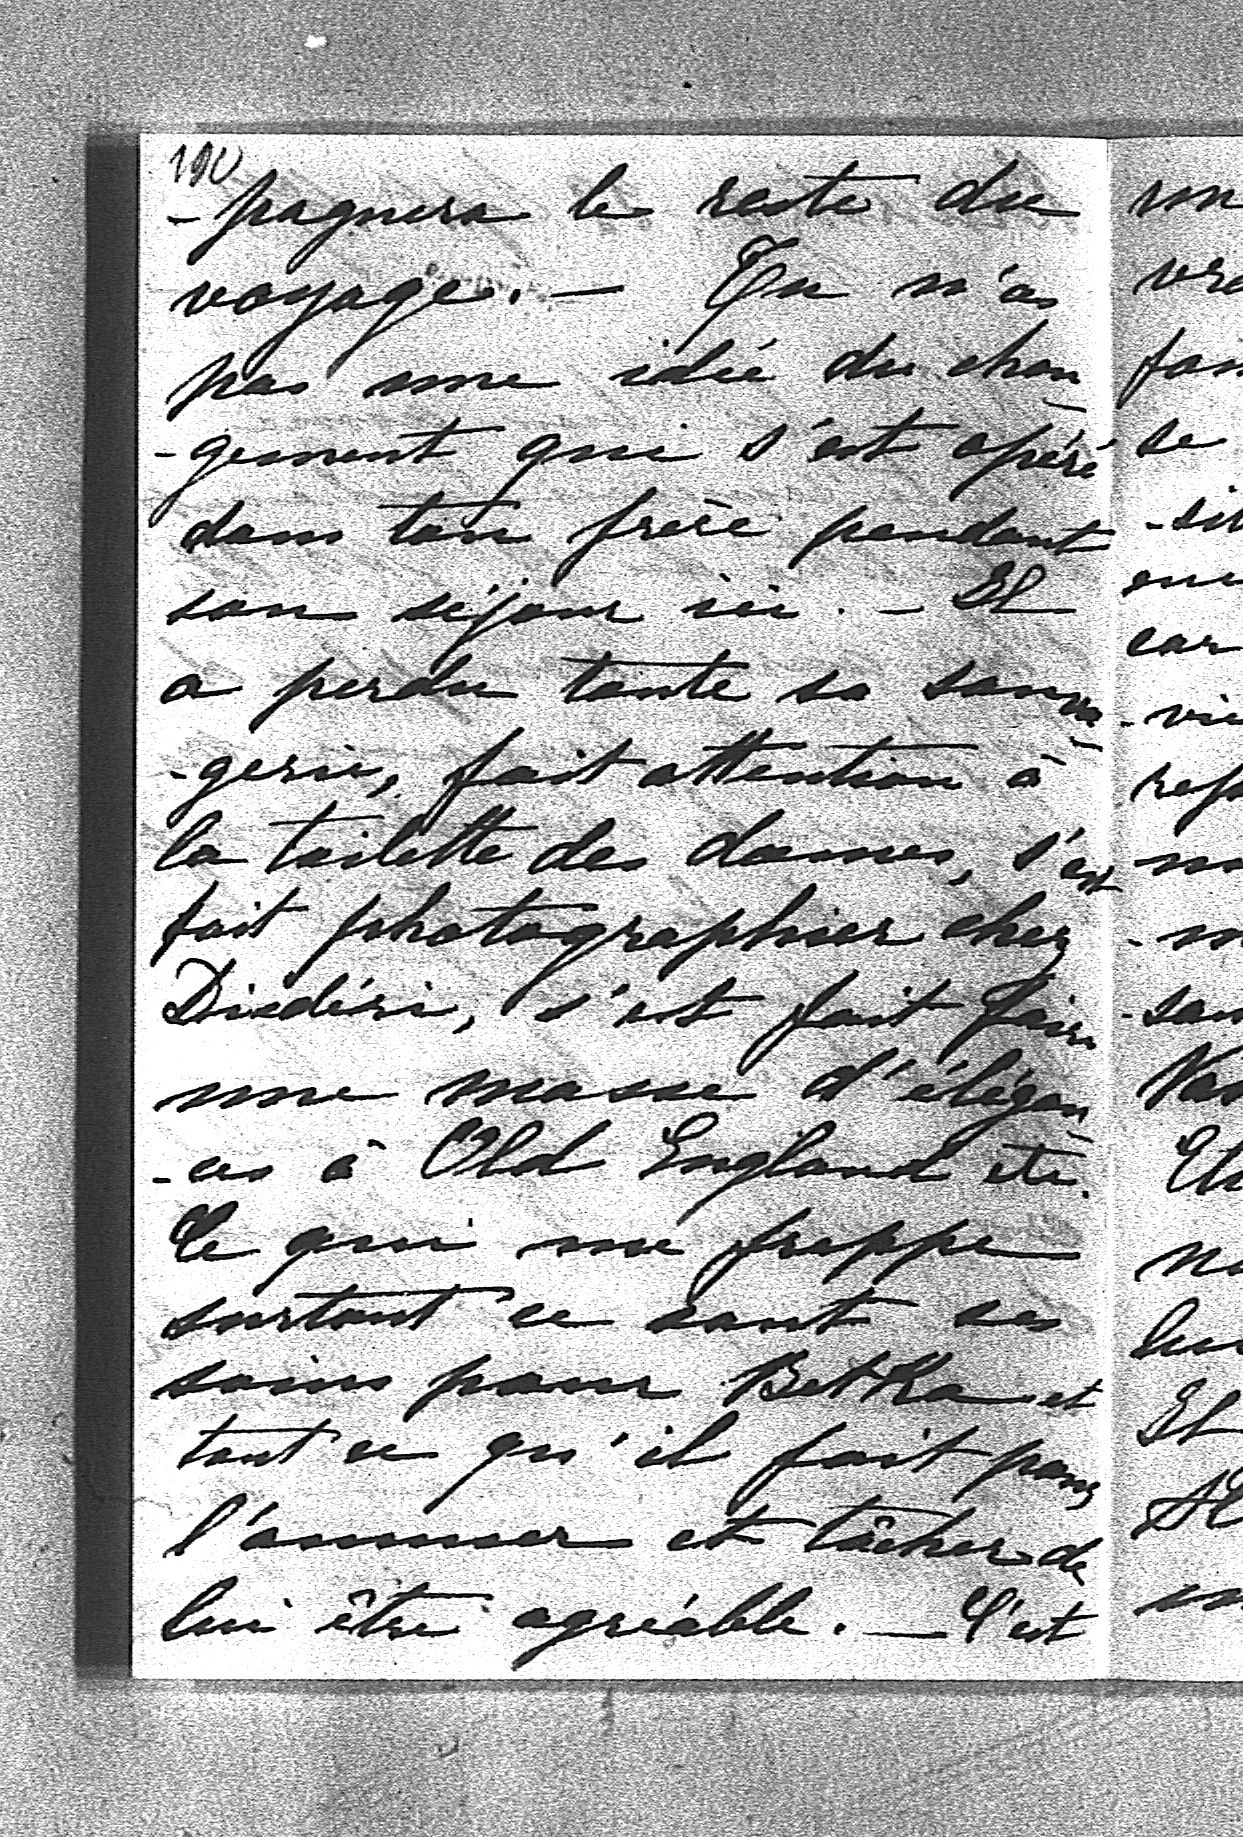 190
-pagnera le reste du
voyage. — Tu n'as
pas une idée du chan
-gement qui s'est opéré
dans ton frère pendant
son séjour ici. — Il
a perdu toute sa sauva
-gerie, fait attention à
la toilette des dames, s'est
fait photographier chez
Disdéri, s'est fait faire
une masse d'élégan
-ces à Old England etc.
Ce qui me frappe
surtout ce sont ses
soins pour Betka et
tout ce qu'il fait pour
l'amuser et tâcher de
lui être agréable. — C'est